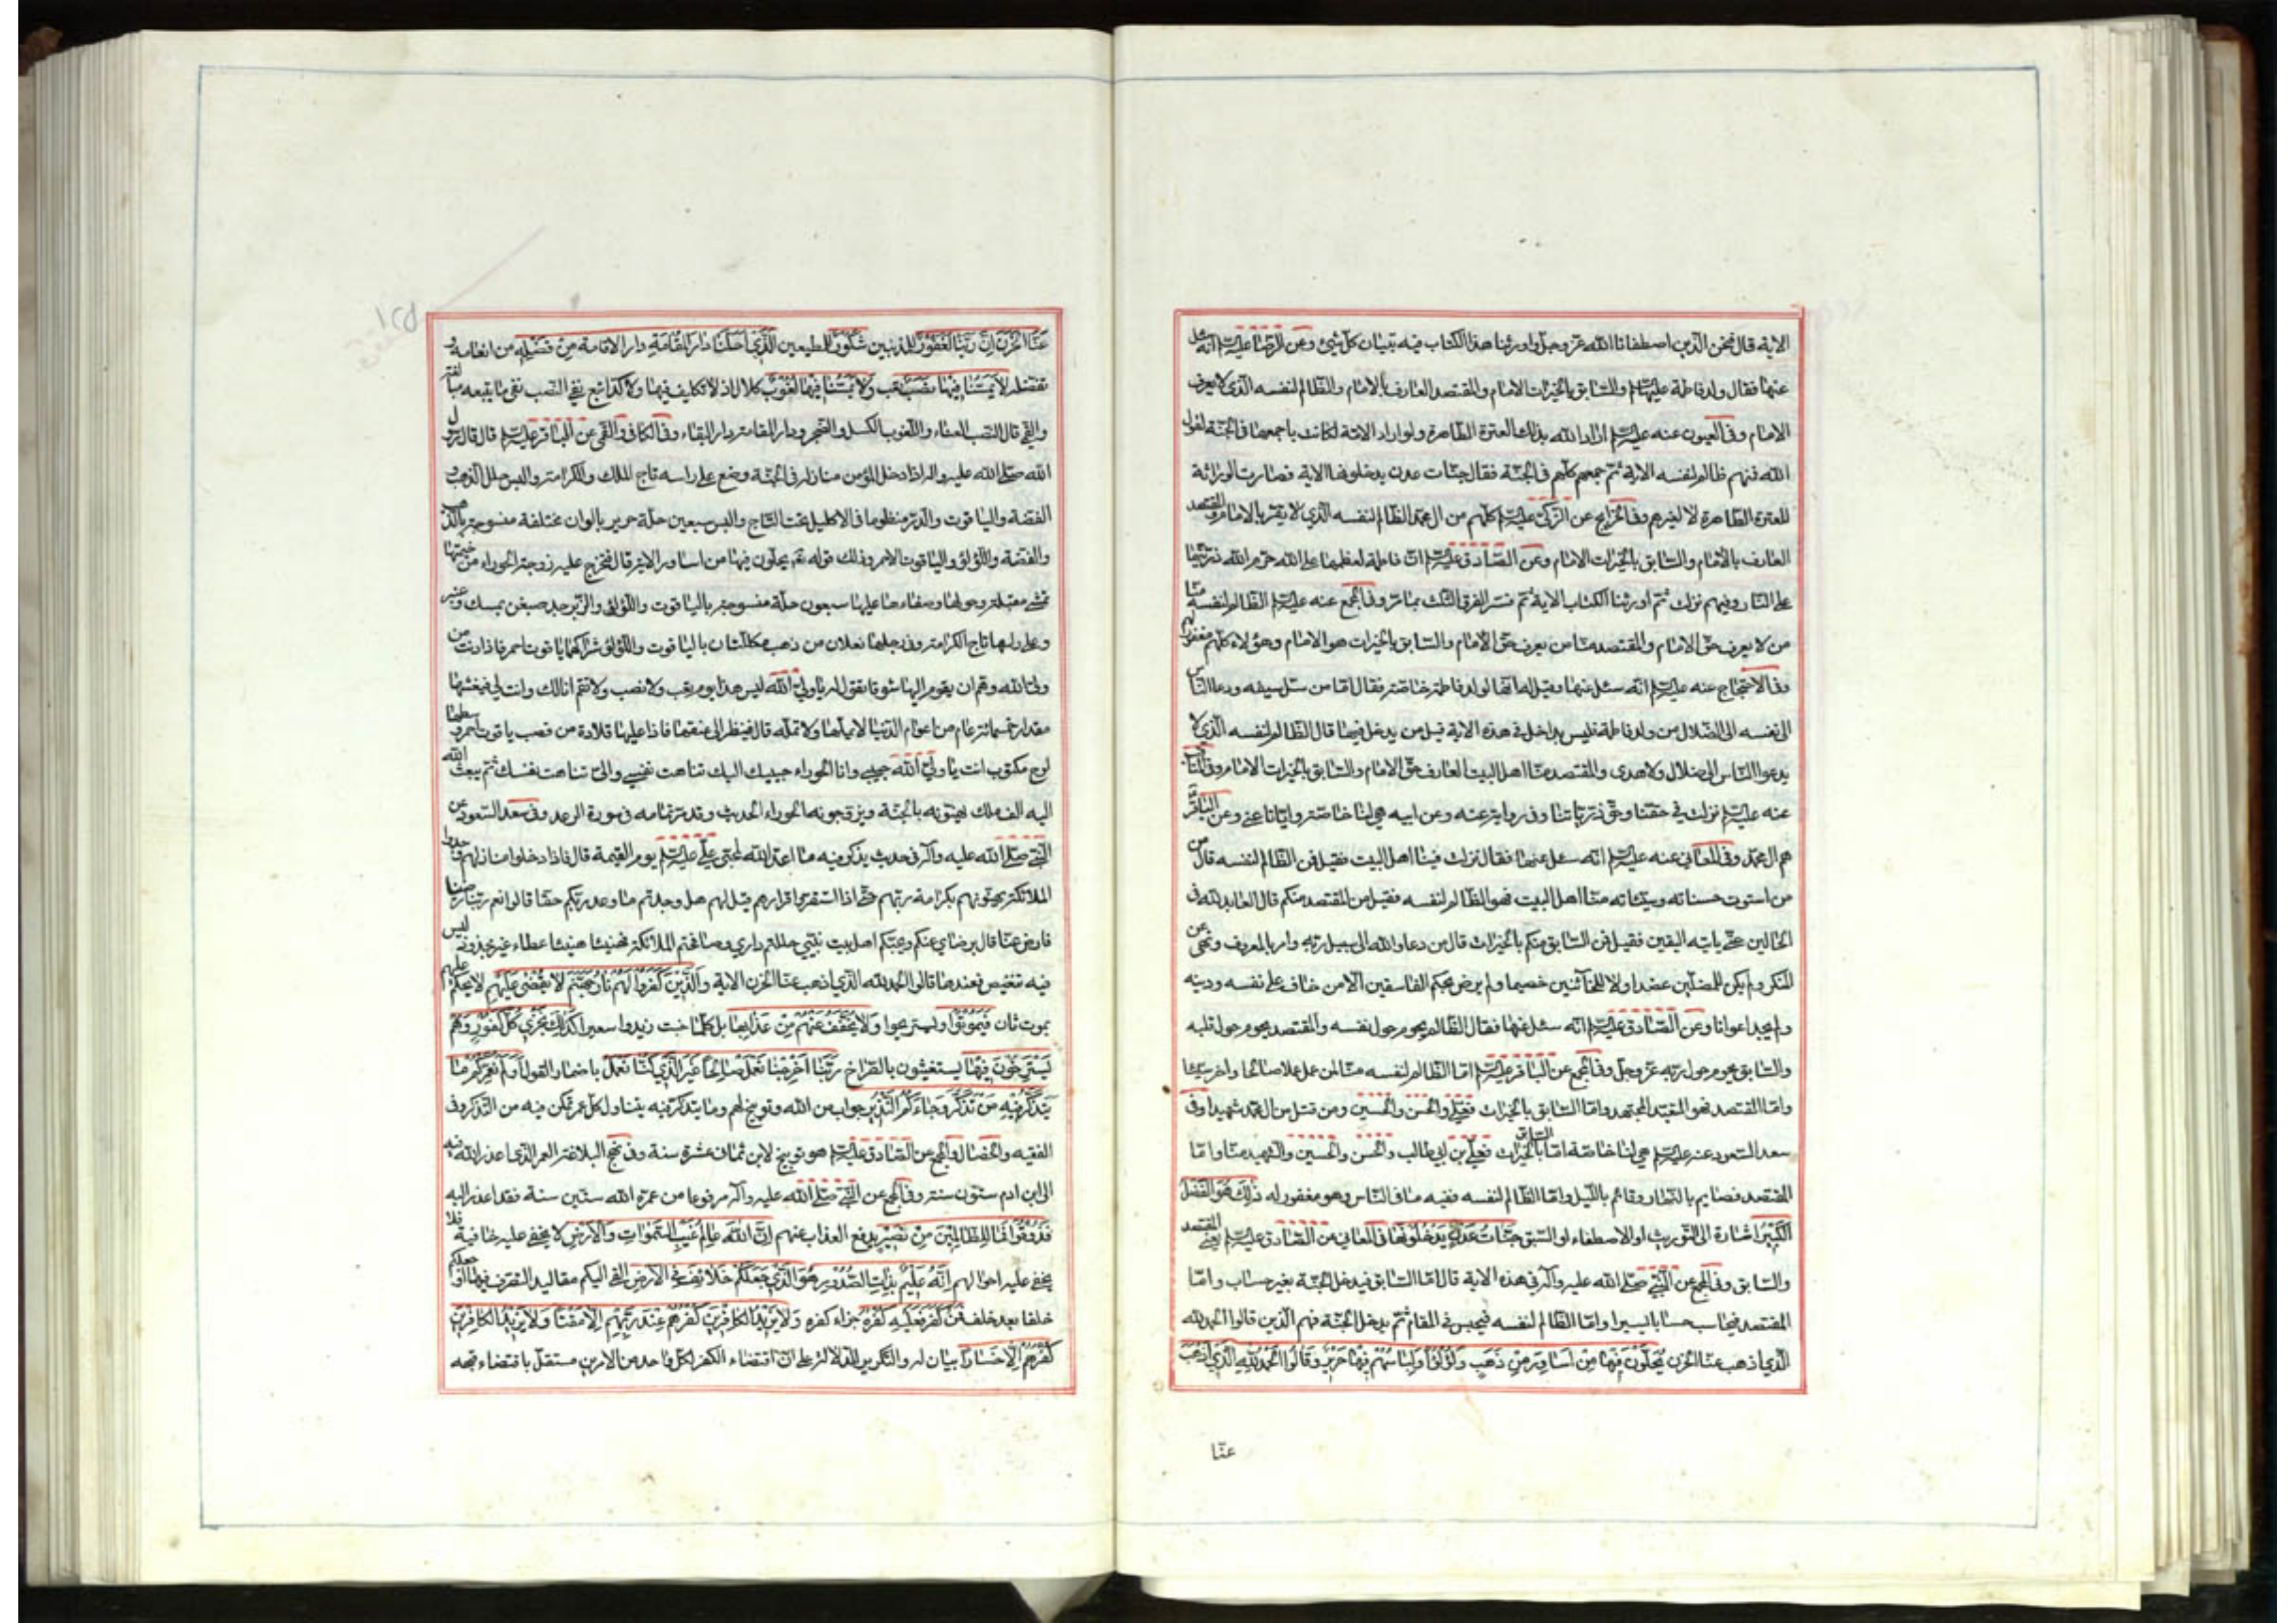 الاية قال فنحن الذين اصطفانا الله عز وجل واورثنا هذا الكتاب فيه تبيان كل شيئ وعن الرضا عليه السلم انه سئل
عنها فقال ولد فاطمة عليها السلم والسابق بالخيرات الامام والمقتصد العارف بالامام والظالم لنفسه الذي لا يعرف
الامام وفي العيون عنه عليه السلم اراد الله بذلك العترة الطاهرة ولو اراد الامة لكانت باجمعها في الجنة لقول
الله فمنهم ظالم لنفسه الاية ثم جمعهم كلهم في الجنة فقال جنات عدن يدخلونها الاية فصارت الوراثة
للعترة الطاهرة لا لغيرهم وفي الخرايج عن الزكي عليه السلم كلهم من ال محمد الظالم لنفسه الذي لا يقر بالامام والمقتصد
العارف بالامام والسابق بالخيرات الامام وعن الصادق عليه السلم ان فاطمة لعظمها على الله حرم الله ذريتها
على النار وفيهم نزلت ثم اورثنا الكتاب الاية ثم فسر الفرق الثلث بما مر وفي المجمع عنه عليه السلم الظالم لنفسه منا
من لا يعرف حق الامام والمقتصد منا من يعرف حق الامام والسابق بالخيرات هو الامام وهؤلاء كلهم مغفور لهم
وفي الاحتجاج عنه عليه السلم انه سئل عنها وقيل له انها لولد فاطمة خاصة فقال اما من سل سيفه ودعا الناس
الى نفسه الى الضلال من ولد فاطمة فليس بداخل في هذه الاية قيل من يدخل فيها قال الظالم لنفسه الذي لا
يدعوا الناس الى ضلال ولا هدى والمقتصد منا اهل البيت العارف حق الامام والسابق بالخيرات الامام وفي المناقب
عنه عليه السلم نزلت في حقنا وحق ذرياتنا وفي رواية عنه وعن ابيه هي لنا خاصة وايانا عنى وعن الباقر
هم ال محمد وفي المعاني عنه عليه السلم انه سئل عنها فقال نزلت فينا اهل البيت فقيل فمن الظالم لنفسه قال من
من استوت حسناته وسيئاته منا اهل البيت فهو الظالم لنفسه فقيل من المقتصد منكم قال العابد لله في
الحالين حتى ياتيه اليقين فقيل فمن السابق منكم بالخيرات قال من دعا والله الى سبيل ربه وامر بالمعروف ونهى عن
المنكر ولم يكن للمضلين عضدا ولا للخائنين خصيما ولم يرض بحكم الفاسقين الا من خاف على نفسه ودينه
ولم يجد اعوانا وعن الصادق عليه السلم انه سئل عنها فقال الظالم يحوم حول نفسه والمقتصد يحوم حول قلبه
والسابق يحوم حول ربه عز وجل وفي المجمع عن الباقر عليه السلم اما الظالم لنفسه منا لمن عمل عملا صالحا واخر سيئا
واما المقتصد فهو المتعبد المجتهد واما السابق بالخيرات فعلي والحسن والحسين ومن قتل من ال محمد شهيدا وفي
سعد السعود عنه عليه السلم هي لنا خاصة اما السابق بالخيرات فعلي بن ابي طالب والحسن والحسين والشهيد منا واما
المقتصد فصايم بالنهار وقائم بالليل واما الظالم لنفسه ففيه ما في الناس وهو مغفور له ذلك هو الفضل
الكبير اشارة الى التوريث او الاصطفاء او السبق جنات عدن يدخلونها في المعاني عن الصادق عليه السلم يعني المقتصد
والسابق وفي المجمع عن النبي صلى الله عليه وآله في هذه الاية قال اما السابق فيدخل الجنة بغير حساب واما
المقتصد فيحاسب حسابا يسيرا واما الظالم لنفسه فيحبس في المقام ثم يدخل الجنة فهم الذين قالوا الحمد لله
الذي اذهب عنا الحزن يحلون فيها من اساور من ذهب ولؤلؤا ولباسهم فيها حرير وقالوا الحمد لله الذي اذهب
عنا
١٢٥
عنا الحزن ان ربنا لغفور للمذنبين شكور للمطيعين الذي احلنا دار المقامة دار الاقامة من فضله من انعامه و
تفضله لا يمسنا فيها نصب تعب ولا يمسنا فيها لغوب كلال اذ لا تكليف فيها ولا كد اتبع نفي النصب نفي ما يتبعه مبالغة
والقمي قال النصب العناء واللغوب الكسل والضجر ودار المقامة دار البقاء وفي الكافي والقمي عن الباقر عليه السلم قال قال رسول
الله صلى الله عليه واله اذا دخل المؤمن منازله في الجنة وضع على راسه تاج الملك والكرامة والبس حلل الذهب و
الفضة والياقوت والدر منظوما في الاكليل تحت التاج والبس سبعين حلة حرير بالوان مختلفة منسوجة بالذهب
والفضة واللؤلؤ والياقوت الاحمر وذلك قوله تع يحلون فيها من اساور الاية قال فتخرج عليه زوجته الحوراء من خيمتها
تمشي مقبلة وحولها وصفاءها عليها سبعون حلة منسوجة بالياقوت واللؤلؤ والزبرجد صبغن بمسك وعنبر
وعلى راسها تاج الكرامة وفي رجليها نعلان من ذهب مكللتان بالياقوت واللؤلؤ شراكهما ياقوت احمر فاذا دنت من
ولي الله وهم ان يقوم اليها شوقا تقول له يا ولي الله ليس هذا يوم تعب ولا نصب ولا تقم انا لك وانت لي فيعتنقها
مقدار خمسمائة عام من اعوام الدنيا لا يملها ولا تمله قال فينظر الى عنقها فاذا عليها قلادة من قصب ياقوت احمر وسطها
لوح مكتوب انت يا ولي الله حبيبي وانا الحوراء حبيبتك اليك تناهت نفسي والى تناهت نفسك ثم يبعث الله
اليه الف ملك يهنئونه بالجنة ويزوجونه الحوراء الحديث وقد مر تمامه في سورة الرعد وفي سعد السعود عن
النبي صلى الله عليه وآله في حديث يذكر فيه ما اعد الله لمحبي علي عليه السلم يوم القيمة قال فاذا دخلوا منازلهم وجدوا
الملائكة يهنئونهم بكرامة ربهم حتى اذا استقروا قرارهم قيل لهم هل وجدتم ما وعد ربكم حقا قالوا نعم ربنا رضينا
فارض عنا قال برضاي عنكم وبحبكم اهل بيت نبيي حللتم داري وصافحتم الملائكة فهنيئا هنيئا عطاء غير مجذوذ ليس
فيه تنغيص فعندها قالوا الحمد لله الذي اذهب عنا الحزن الاية والذين كفروا لهم نار جهنم لا يقضى عليهم لا يحكم عليهم
بموت ثان فيموتوا وليستريحوا ولا يخفف عنهم من عذابها بل كلما خبت زيدوا سعيرا كذلك نجزي كل كفور وهم
يصطرخون فيها يستغيثون بالصراخ ربنا اخرجنا نعمل صالحا غير الذي كنا نعمل باضمار القول اولم نعمركم ما
يتذكر فيه من تذكر وجاءكم النذير جواب من الله وتوبيخ لهم وما يتذكر فيه يتناول كل عمر تمكن فيه من التذكر وفي
الفقيه والخصال والمجمع عن الصادق عليه السلم هو توبيخ لابن ثمان عشرة سنة وفي نهج البلاغة العمر الذي اعذر الله فيه
الى ابن ادم ستون سنة وفي المجمع عن النبي صلى الله عليه وآله مرفوعا من عمره الله ستين سنة فقد اعذر اليه
فذوقوا فما للظالمين من نصير يدفع العذاب عنهم ان الله عالم غيب السموات والارض لا يخفى عليه خافية فلا
يخفى عليه احوالهم انه عليم بذات الصدور هو الذي جعلكم خلائف في الارض القى اليكم مقاليد التصرف فيها او جعلكم
خلفا بعد خلف فمن كفر فعليه كفره جزاء كفره ولا يزيد الكافرين كفرهم عند ربهم الا مقتا ولا يزيد الكافرين
كفرهم الا خسارا بيان له والتكرير للدلالة على ان اقتضاء الكفر لكل واحد من الامرين مستقل باقتضاء قبحه